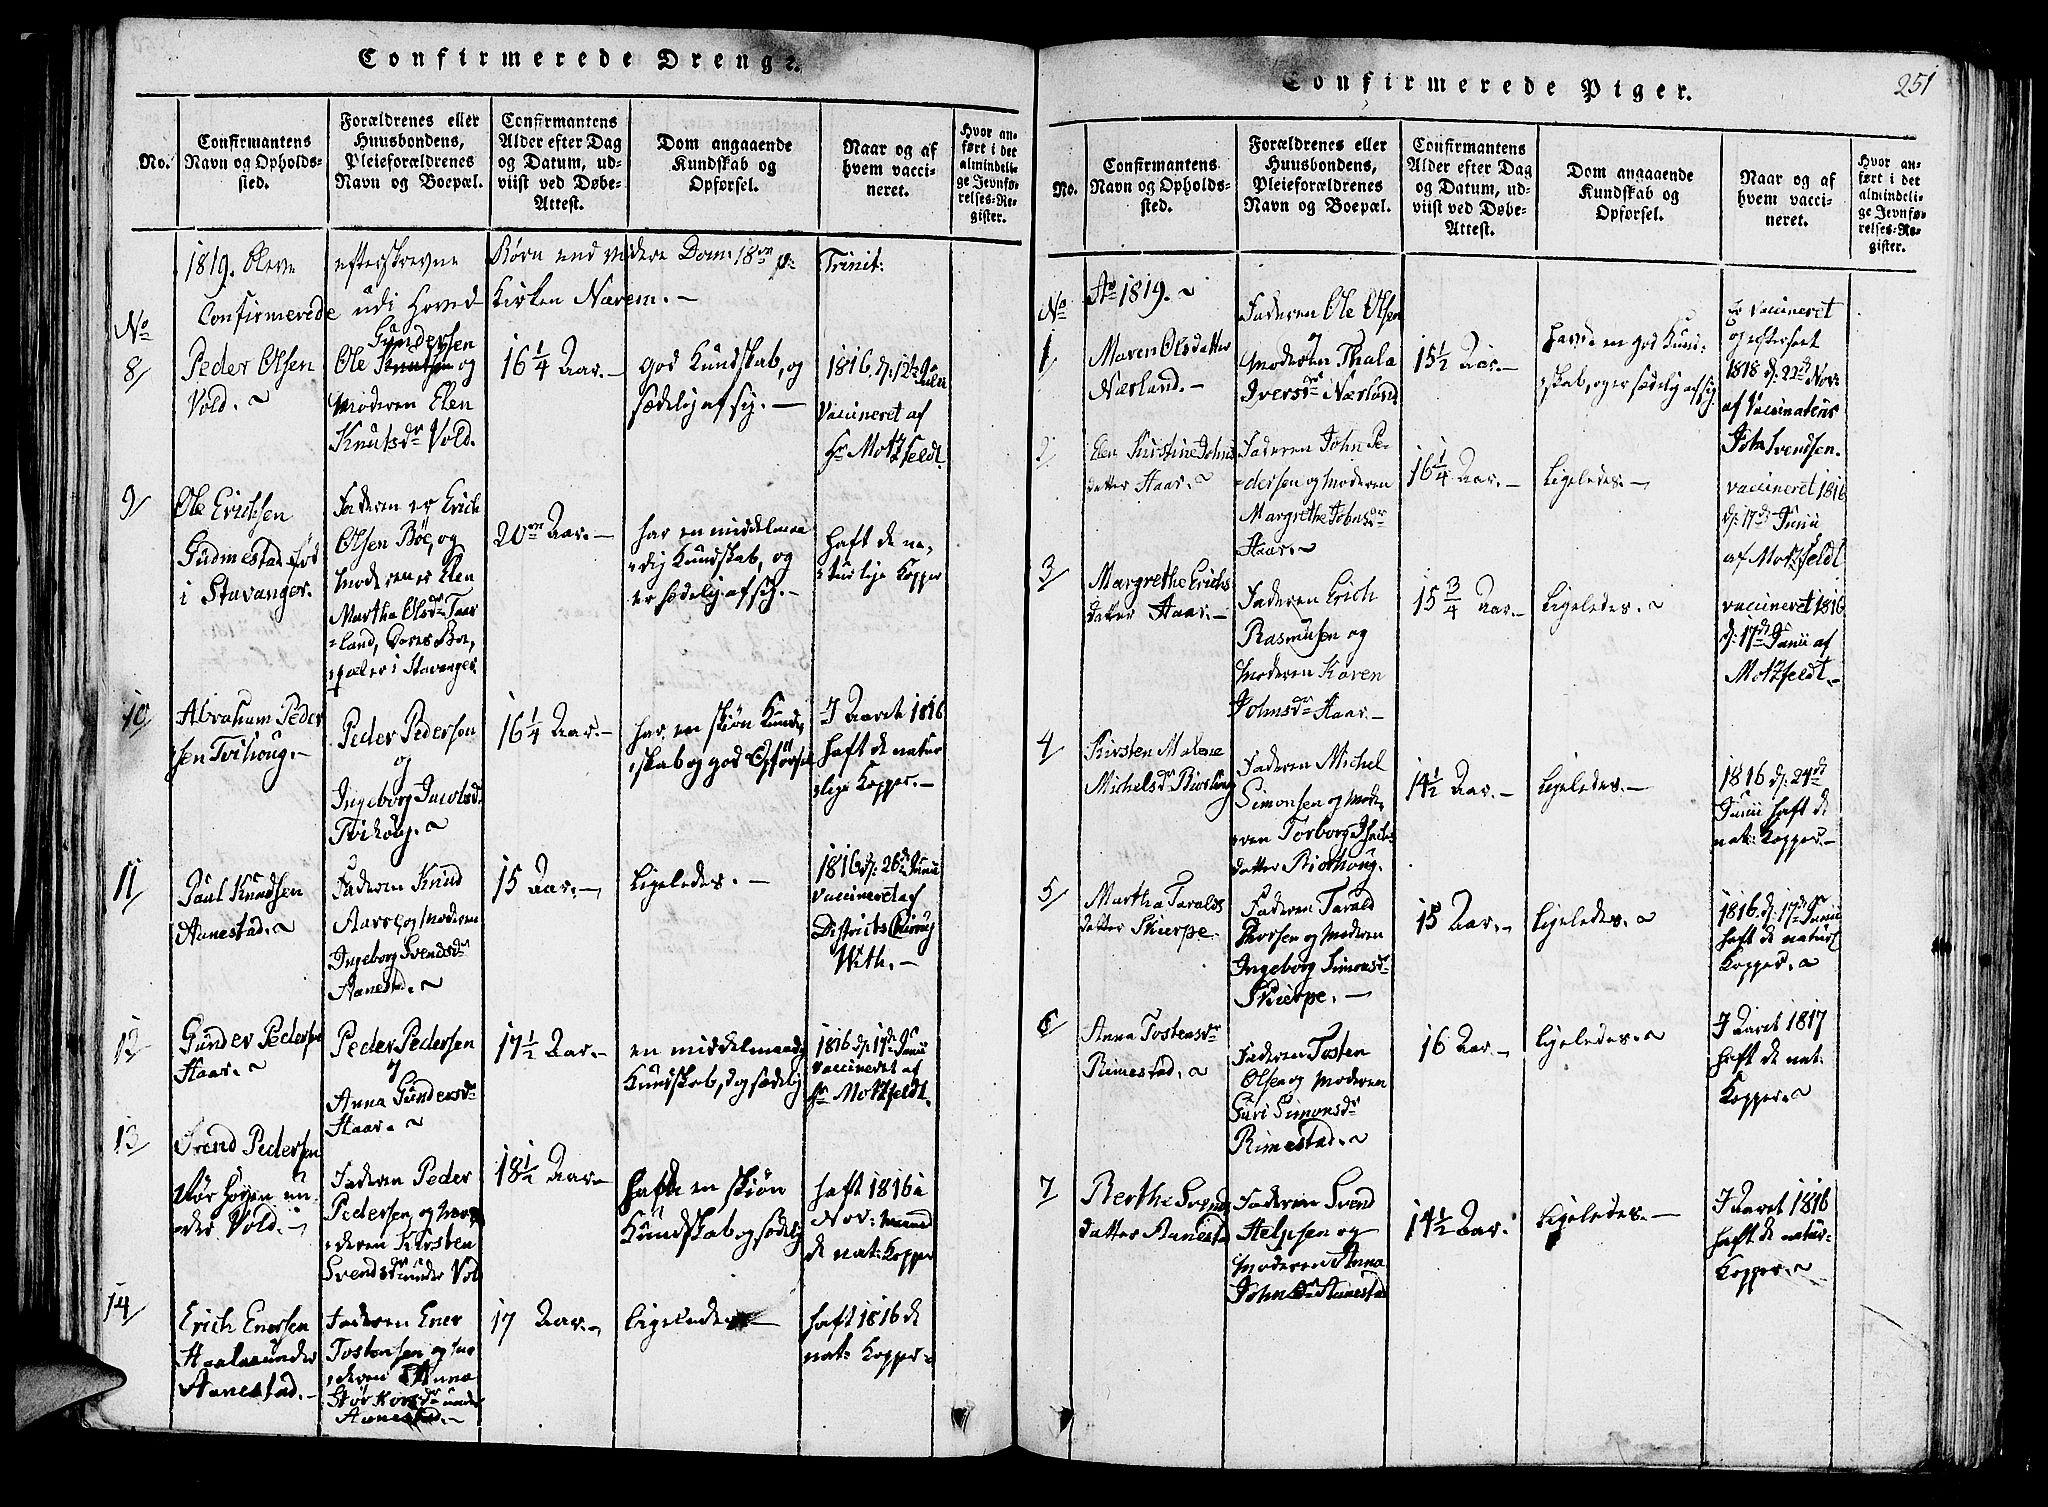 Confirmerede Drenge.
No.
Confirmantens
Navn og Opholds-
sted.
Forældrenes eller
Huusbondens,
Pleieforældrenes
Navn og Boepæl.
Confirmantens
Alder efter Dag
og Datum, ud-
viist ved Døbe-
Attest.
Dom angaaende
Kundskab og
Opførsel.
Naar og af
hvem vacci-
neret.
Hvor an-
ført i det
almindeli-
ge Jevnfø-
relses-Re-
gister.
1819. Bleve efterskrevne Børn end videre Dom: 18de p: Trinit:
Confirmerede udi Hoved Kirken Nærem. -
No
8/
Peder Olsen
Vold. ~
Gundersen
Ole og
Moderen Elen
Knutsdr Vold.
16 1/4 Aar. -
god Kundskab, og
sædelig af sig. -
1816, d: 12te
Julii
Vaccineret af
Hr Motzfeldt.
9/
Ole Erichsen
Gudmestad fød
i Stavanger.
Faderen er Erich
Olsen Bøe, og
Moderen er Elen
Martha Olsdr Taar
=land, Deres Boe,
pæl er i Stavanger
20 Aar. -
har en middelmaa
=dig Kundskab, og
er sædelig af sig. -
haft de na,
=turlige Kopper
10/
Abraham Peder
sen Tvihoug. -
Peder Pedersen
og
Ingeborg Jacobsd.
Tvihoug. ~
16 1/4 Aar. -
har en skiøn Kund,
=skab og god Opførsel
I Aaret 1816
haft de natur
=lige Kopper. -
11/
Paul Knudsen
Aanestad. ~
Faderen Knud
Aarre, og Moderen
Ingeborg Svendsdr
Aanestad. ~
15 Aar. -
Ligeledes. -
1816 d: 26de Junii
Vaccineret af
Districts Chirurg
With. -
12/
Gunder Pedersen
Haar. ~
Peder Pedersen
og
Anna Gundersdr
Haar. ~
17 1/2 Aar. -
en middelmaadig
Kundskab, og sædelig
1816 d: 17de Junii
Vaccineret af
Hr Motzfeldt.
13/
Svend Pedersen
Hør Høyen un,
=der Vold. -
Faderen Peder
Pedersen, og Mo
=deren Kirsten
Svendsdr under Vold
18 1/2 Aar. -
Hafde en skiøn
Kundskab og sædelig
haft 1816 i
Nov: Maaned
de nat: Kopper
14/
Erich Enersen
under
Aanestad. -
Faderen Ener
Tostensen og Mo
=deren Anna
under
Aanestad. -
17 Aar. -
Ligeledes -
haft 1816 de
nat: Kopper -
251
Confirmerede Piger.
No.
Confirmantens
Navn og Opholds-
sted.
Forældrenes eller
Huusbondens,
Pleieforældrenes
Navn og Boepæl.
Confirmantens
Alder efter Dag
og Datum, ud-
viist ved Døbe-
Attest.
Dom angaaende
Kundskab og
Opførsel.
Naar og af
hvem vacci-
neret.
Hvor an-
ført i det
almindeli-
ge Jevnfø-
relses-Re-
gister.
Ao 1819. ~
No
1/
Maren Olsdatter
Nærland. -
Faderen Ole Olsen
og
Moderen Thala
Iversdr Nærland
15 1/2 Aar. -
Havde en god Kund=
=skab, og er sædelig af sig
Er Vaccineret
og efterseet
1818 d: 22de Nov:
af Vaccinateur
John Svendsen.
2/
Elen Kirstine Johns
datter Haar. ~
Faderen John Pe-
=dersen og Moderen
Margrethe Johnsdr
Haar. ~
16 1/4 Aar. -
Ligeledes. -
vaccineret 1816
d: 17de Junii
af Motzfeldt
3/
Margrethe Erichs
datter Haar. -
Faderen Erich
Rasmusen og
Moderen Karen
Johnsdr Haar. -
15 3/4 Aar. -
Ligeledes. ~
vaccineret 1816
d: 17de Junii af
Motzfeldt. -
4/
Kirsten Malene
Michelsdr
Faderen Michel
Simonsen og Mode,
=ren Torborg
datter
14 1/2 Aar. -
Ligeledes. -
1816 d: 24de
Junii haft de
nat: Kopper. -
5/
Martha Taralds
datter Skierpe.
Faderen Tarald
Thorsen og Moderen
Ingeborg Simonsdr
Skierpe. -
15 Aar. -
Ligeledes. ~
1816 d: 17de Junii
haft de naturl
Kopper. ~
6/
Anna Tostensdr
Rimestad. ~
Faderen Tosten
Olsen og Moderen
Guri Simonsdr
Rimestad. ~
16 Aar. -
Ligeledes. ~
I Aaret 1817
haft de nat:
Kopper. ~
7
Berthe Svends
datter Aanestad
Faderen Svend
Helgesen og
Moderen Anna
Johnsdr Aanestad
14 1/2 Aar.
Ligeledes. -
I Aaret 1816
haft de natur=
Kopper. ~